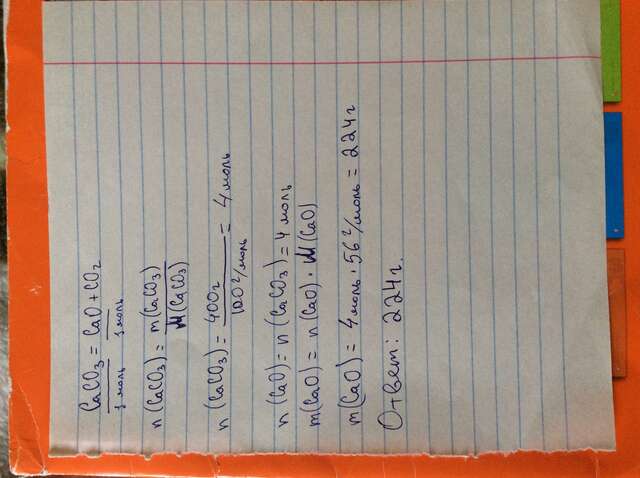 CaCO₃ = CaO + CO₂
1 моль 1 моль
n(CaCO₃) = m(CaCO₃) / M(CaCO₃)
n(CaCO₃) = 400г / 100 г/моль = 4 моль
n(CaO) = n(CaCO₃) = 4 моль
m(CaO) = n(CaO) · M(CaO)
m(CaO) = 4 моль · 56 г/моль = 224г
Ответ: 224г.